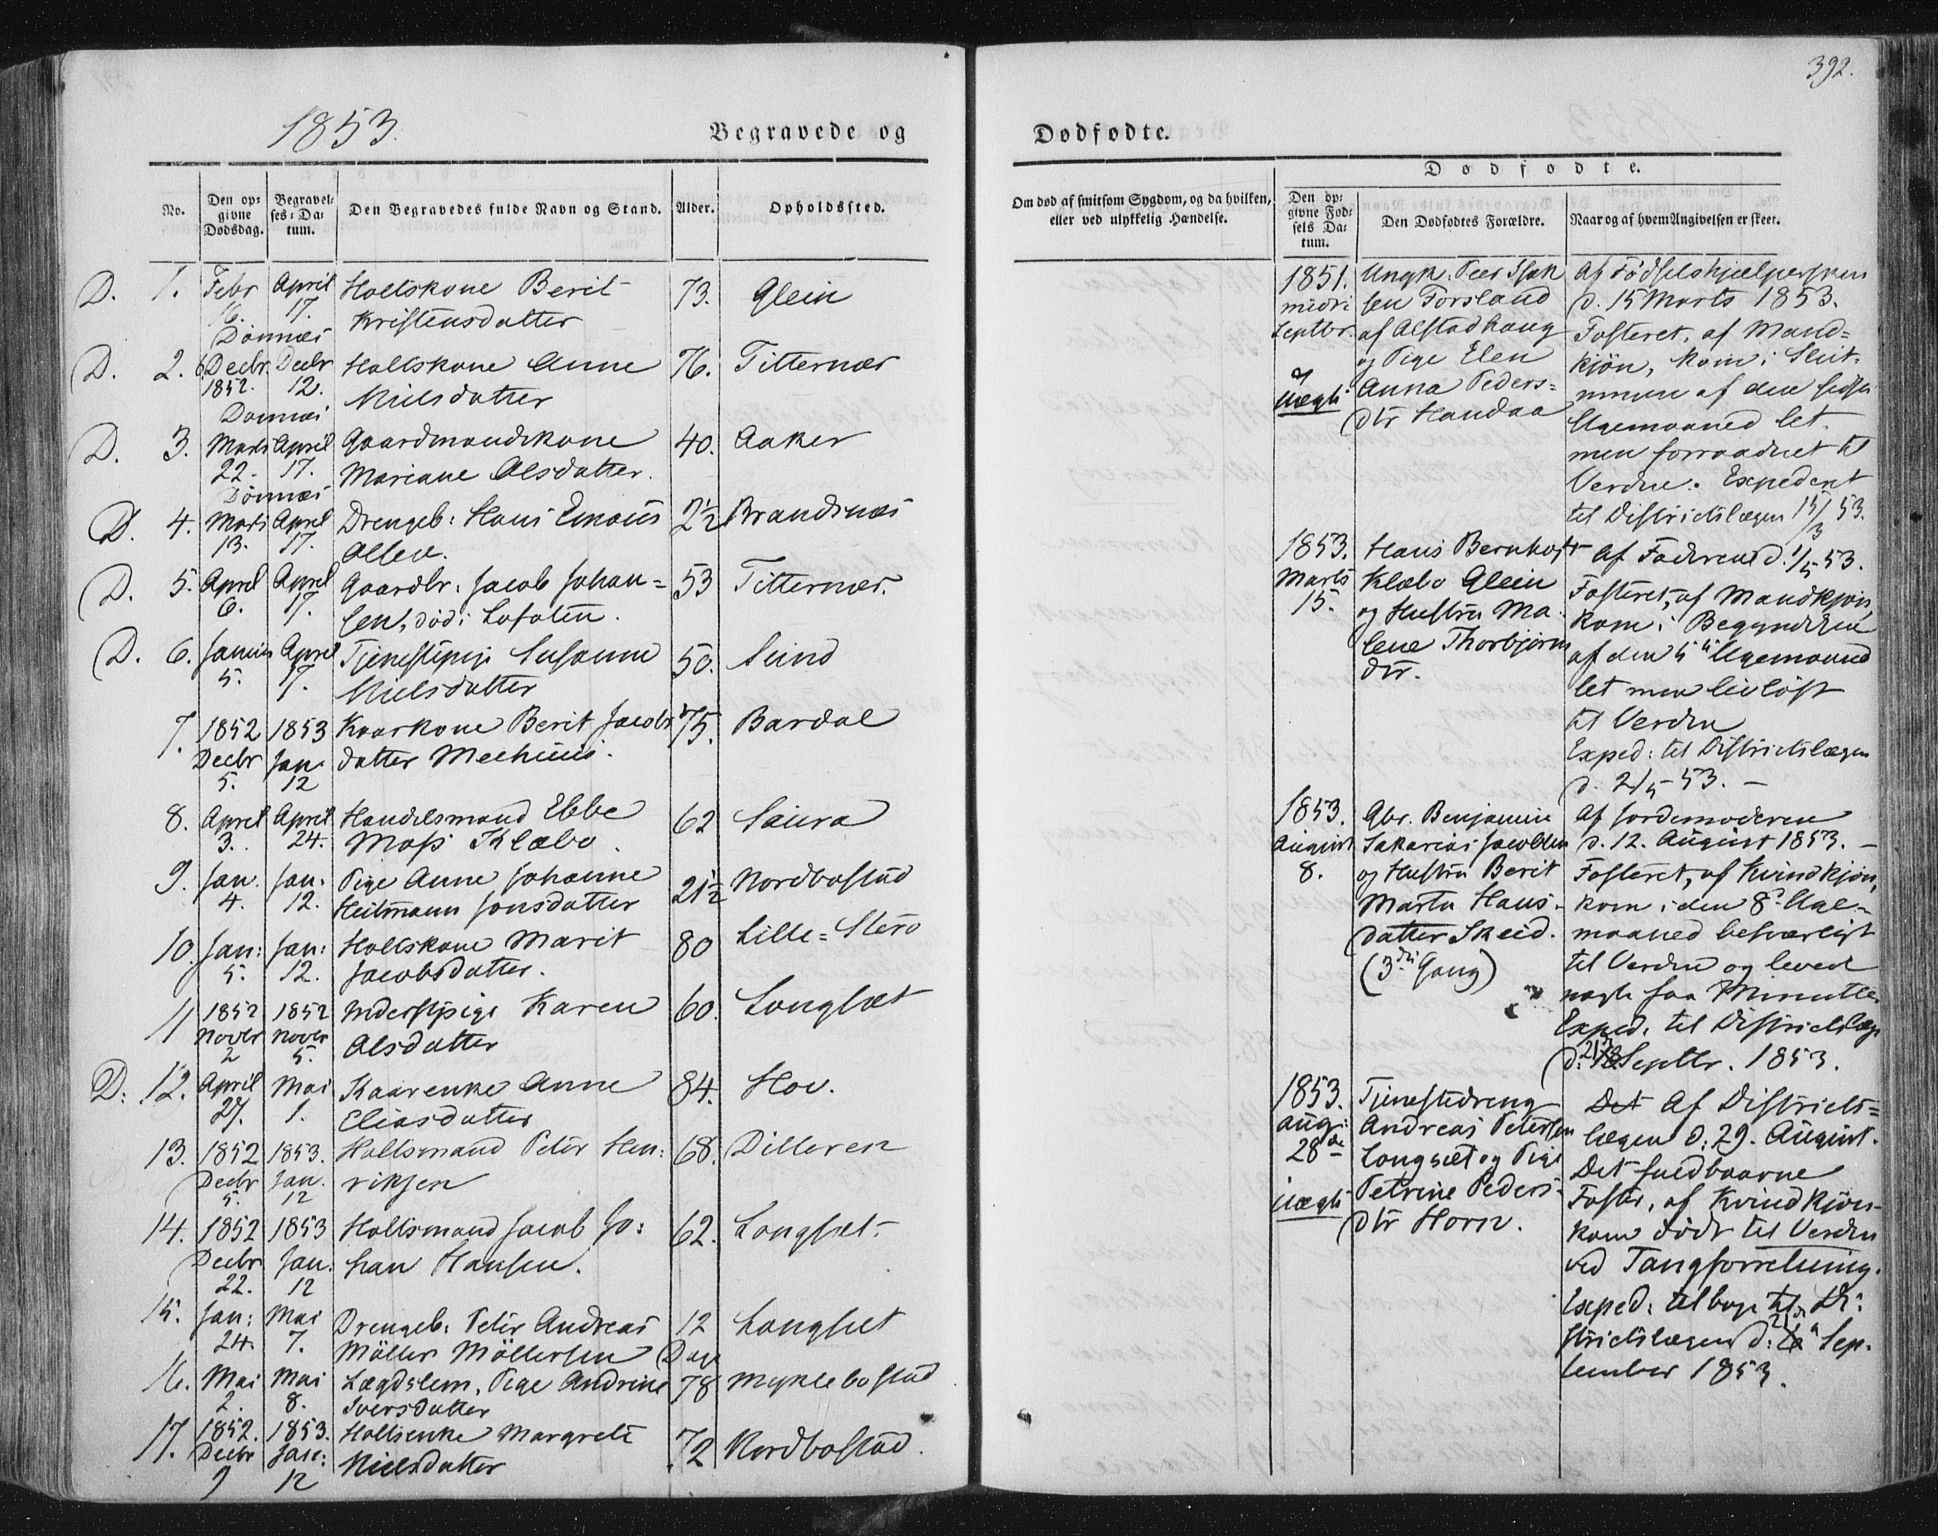 392.
1853.
Begravede og
Dødfødte.
No.
Den opgivne Dødsdag.
Begravelses-Datum.
Den Begravedes fulde Navn og Stand.
Alder.
Opholdssted.
D. 1. Febr 16. April 17. Holtskone Berit 73. Glein
Dønnæs Kristensdatter
D. 2. 6 Decbr. Decbr Holtskone Anne 76. Titternæs
1852. 12. Nielsdatter
Dønnæs
D. 3. Marts April Gaardmandskone 40. Aaker
22. 17. Mariane Olsdatter.
Dønnæs
D. 4. Marts April Drengeb: Hans 2½ Brandsnæs
13. 17. Olsen.
D. 5. April April Gaardbr: Jacob Johan= 53 Titternæs.
6. 17. sen, død i Lofoten.
D. 6. April Tjenestepige Susanna 50. Sund
5. 17. Nielsdatter
7. 1852 1853 Kaarkone Berit Jacobs 75. Bardal
Decbr Jan. datter
5. 12
8. April April Handelsmand Ebbe 62 Saura
3. 24. Moss Klæbo.
9. Jan. Jan. Pige Anne Johanne 21½ Nordbostad
4. 12. Heitmann Jonsdatter
10. Jan: Jan: Holtskone Marit 80 Lille=Sterø
5. 12. Jacobsdatter.
11 1852 1852 Inderstpige Karen 60. Langset
Novbr Novbr Olsdatter
2 5.
D: 12. April Mai Kaarenke Anne 84. Hov.
27. 1. Eliasdatter
13. 1852 1853. Holtsmand Peter Hen: 68. Dilleren
Decbr Jan. riksen
5. 12
14. 1852 1853 Holtsmand Jacob Jo: 62. Langset
Decbr Jan. han Hansen.
22. 12
15. Jan: Mai Drengeb: Peter Andreas 12 Langset
24. 7. Møller Møllersen Dage
16. Mai Mai Lægdslem, Pige Andrine 78 Myklebostad
2. 8. Iversdatter
17. 1852. 1853. Holtsenke Margrete 72 Nordbostad.
Decbr Jan: Nielsdatter
9 12
Om død af smitsom Sygdom, og da hvilken, eller ved ulykkelig Hændelse.
Dødfødte.
Den opgivne Fødsels Datum.
Den Dødfødtes Forældre.
Naar og af hvem Angivelsen er skeet.
1851. Ungk. Peer Isak Af Fødselshjælpersken
midt i sen Forsland d. 15 Marts 1853.
Septbr. af Alstadhaug Fosteret, af Mand=
og Pige Elen kjøn, kom i Slut=
Anna Peders= ningen af den
uægte dtr Handaa Ugemaaned let.
men forraadnet til
Verden. Expederet
til Districtslægen 15/3 53.
1853. Hans Bernhoft Af Faderen d. 1/5 53.
Marts Klæbo Glein Fosteret, af Mandkjøn,
15. og Hustru Ma= kom i Begyndelsen
lene Thorbjørns af den 5te Ugemaaned
dtr. let men livløst
til Verden
Exped: til Districtslægen
d. 2/5 53.
1853. Gbr. Benjamin Af Jordemoderen
August Sakarias Jacobsen d. 12. August 1853.
8. og Hustru Berit Fosteret, af Kvindkjøn,
Marta Hans= kom i den 8de Uge=
datter Skeid. maaned besværligt
(3die Gang) til Verden og levede
nogle faa Minutter.
Exped. til Districtslæg.
d. 21 Septbr. 1853.
1853. Tjenestedreng Det Af Districts=
Aug: Andreas Petersen lægen d: 29. August.
28de Langset og Pige Det fuldbaarne
uægte Petrine Peders= Foster, af Kvindkjøn
dtr Horn. kom dødt til Verden
ved Tangforretning.
Exped: tilbage til Di=
strictslægen d: 21 Sep=
tember 1853.